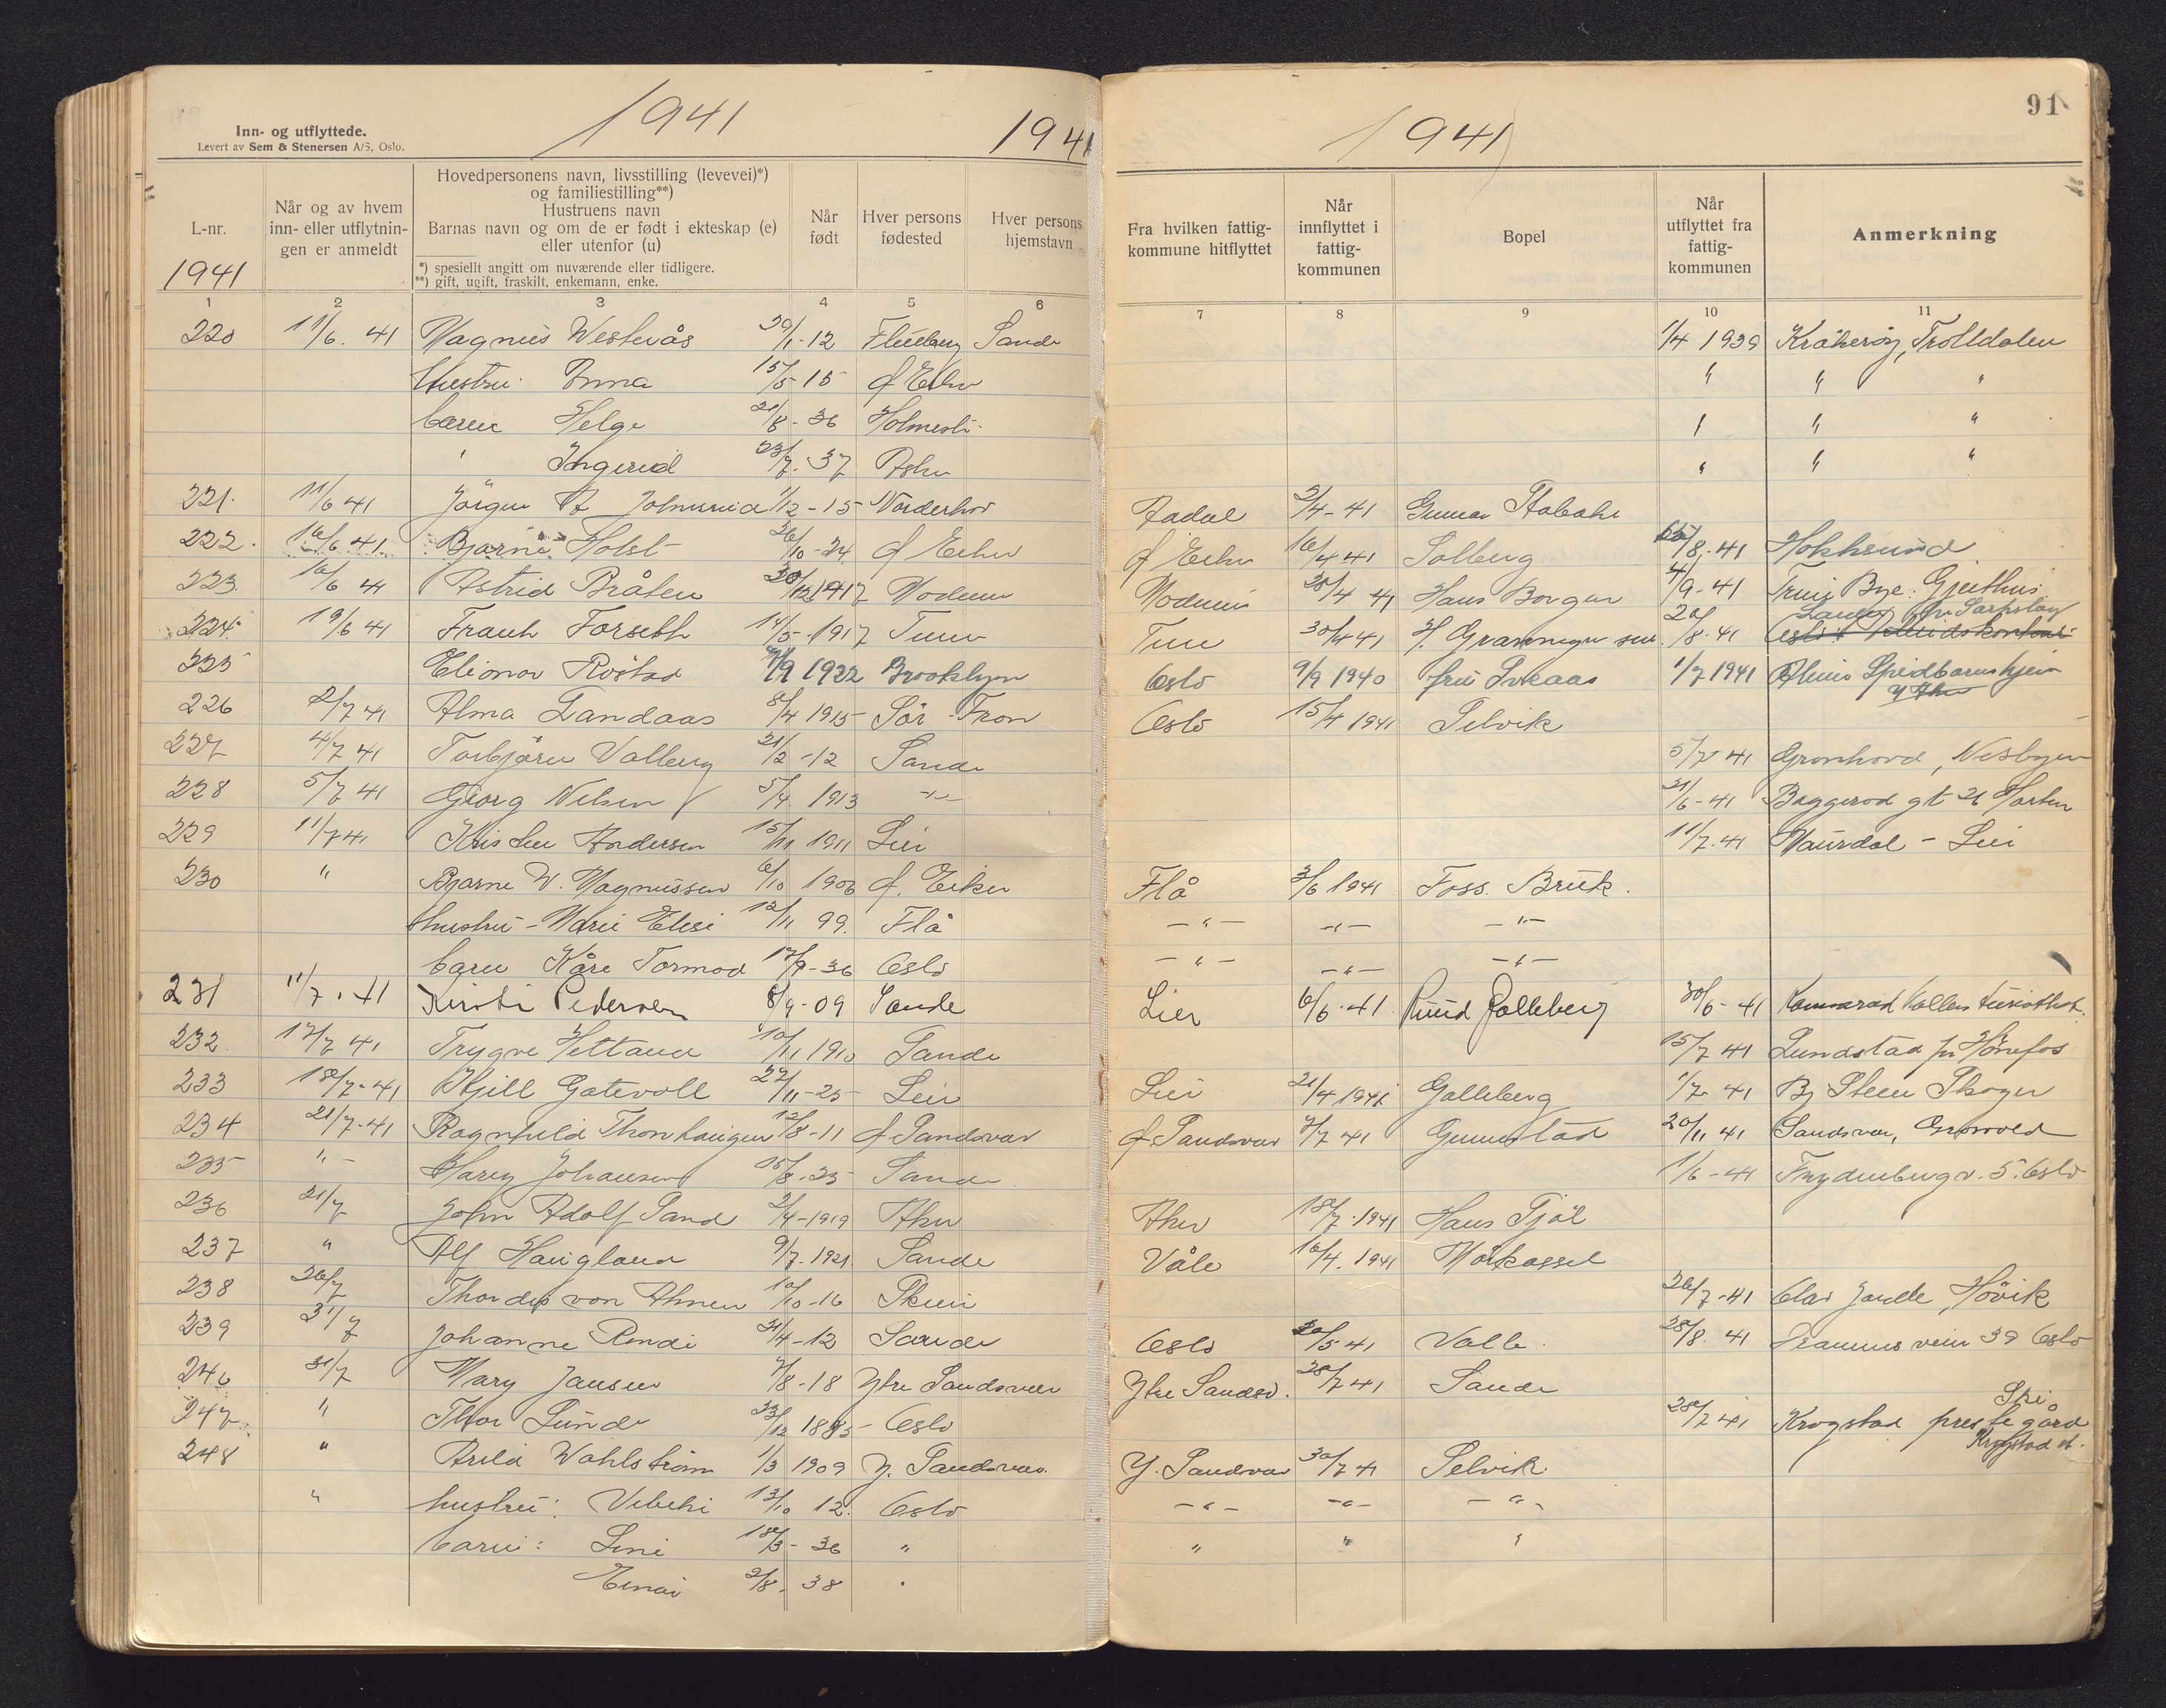 1941
1941
Inn- og utflyttede.
Levert av Sem & Stenersen A/S, Oslo.
L-nr.
1941
Når og av hvem inn- eller utflytnin- gen er anmeldt
Hovedpersonens navn, livsstilling (levevei)*)
og familiestilling**)
Hustruens navn
Barnas navn og om de er født i ekteskap (e)
eller utenfor (u)
*) spesiellt angitt om nuværende eller tidligere.
**) gift, ugift, fraskilt, enkemann, enke.
Når født
Hver persons fødested
Hver persons hjemstavn
1 2 3 4 5 6
220 11/6. 41 Magnus Westerås 29/1-12 Flesberg Sande
Hustru: Anna 15/5 15 Ø Eiker
barn Helge 21/8-36 Holmestr.
" Ingerid 23/7. 37 Asker
221. 11/6 41 Jörgen A 1/12-15 Norderhov
222. 16/6 41 Bjarne Holst 26/10-24 Ø Eiker
223. 16/6 41 Astrid Bråten 30/12 1917 Modum
224. 19/6 41 Frank Forseth 14/5-1917 Tune
225 Elionor Röstad 1922 Brooklyn
226 2/7 41 Alma Landaas 8/4 1915 Sör-Fron
227 4/7 41 Torbjörn Valberg 21/2-12 Sande
228 5/7 41 Georg Nilsen 5/4. 1913 -"-
229 11/7 41 Andersen 15/11 1911 Lier
230 " Bjarne W. Magnussen 6/10 1906 Ø. Eiker
hustru - Marie Elise 12/11 99. Flå
barn Kåre Tormod 17/9-36 Oslo
231 11/7. 41 Kirsti Pedersen 8/9-09 Sande
232. 17/7 41 Trygve Hetland 10/11 1910 Sande
233 18/7-41 Kjell Gatevoll 22/11-25 Lier
234 21/7-41 Ragnhild Thonhaugen 12/8-11 Ø Sandsvær
235 " - Harry Johansen /8-25 Sande
236 21/7 John Adolf Sand 2/4-1919
237 " Alf Haugland 9/7.1921 Sande
238 26/7 Thordis von 10/10-16 Skien
239 31/7 Johanne 21/4-12 Sande
246 31/7 Mary Jansen 7/8-18 Ytre Sandsvær
247. " Thor Lunde 23/12 1885 Oslo
248 " Arild Wahlström 1/3 1909 Y. Sandsvær.
" hustru: Vibeke 13/10 12. Oslo
barn: Line 18/3-36 "
Einar 2/8. 38
91
1941
Fra hvilken fattig- kommune hitflyttet
Når innflyttet i fattig- kommunen
Bopel
Når utflyttet fra fattig- kommunen
Anmerkning
7 8 9 10 11
1/4 1939 Kråkeröy, Trolldalen
" " "
" "
" " "
Aadal 2/4-41 Gunnar Stabakk
Ø Eiker 16/4 41 Solberg /8-41 Hokksund
Modum 28/4 41 Hans Borgen 4/9-41 Bye. Gjeithus
Tune 30/4 41 H. 20/8.41 pr. Sarpsborg
Oslo 9/9 1940 fru 1/7 1941 Spedbarnshjem
Oslo 15/4 1941 Selvik
5/7 41 Grönhovd, Nesbyen
21/6-41 Baggerød gt 26 Horten
11/7. 41 - Lier
Flå 3/6 1941 Foss. Bruk.
- " - - " - - " -
- " - - " - - " -
Lier 6/6.41 Ruud Galleberg 30/6-41
15/7 41 Lundstad pr Hönefos
Lier 21/4 1941 Galleberg 1/7-41 Skoger
Ø Sandsvær 7/7 41 Gunnestad 20/11 41 Sandsvær,
1/6-41 Frydenberg v. 5. Oslo
18/7.1941 Hans
Våle 16/4.1941
26/7-41 Hövik
Oslo 20/5 41 Valle. 28/8. 41 veien 39 Oslo
Ytre Sandsv. 28/7 41 Sande
28/7 41 Krogstad prestegård Ski
Krogstad st.
Y. Sandsvær 30/7 41 Selvik
- " - - " - - " -
" " "